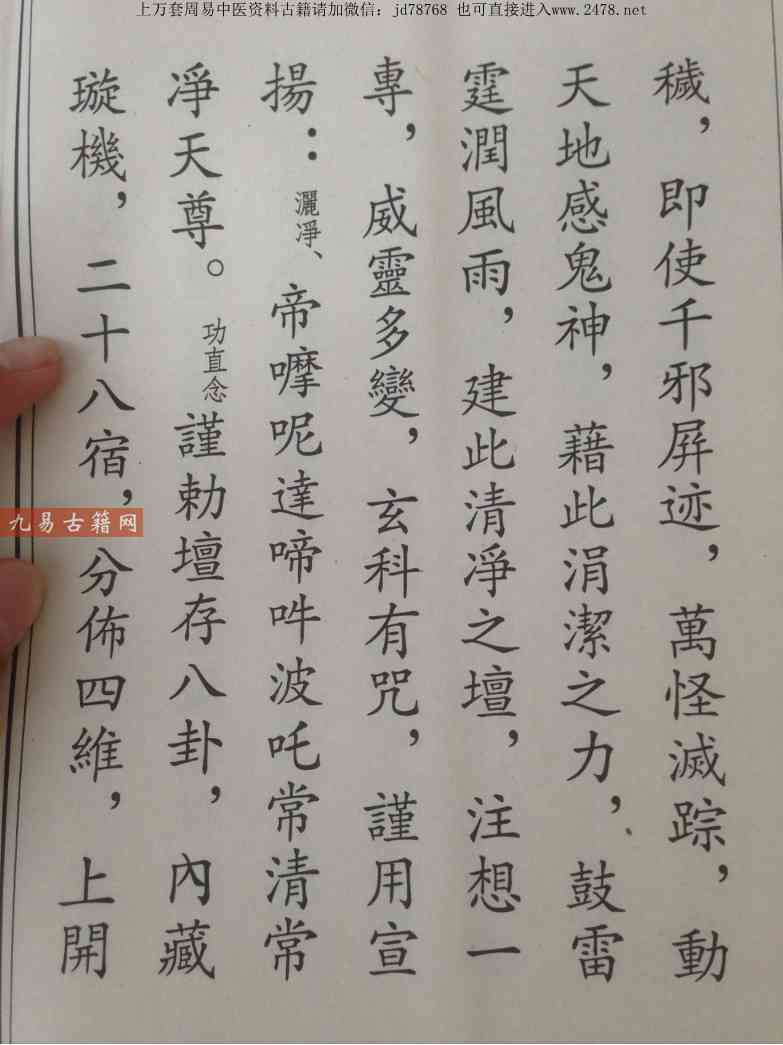 上万套周易中医资料古籍请加微信：jd78768 也可直接进入www.2478.net
穢，即使千邪屏迹，萬怪滅踪，動
天地感鬼神，藉此涓潔之力，鼓雷
霆潤風雨，建此清凈之壇，注想一
專，威靈多變，玄科有咒，謹用宣
揚：灑凈、帝嚤呢達啼吽波吒常清常
凈天尊。功直念謹勅壇存八卦，內藏
璇機，二十八宿，分佈四維，上開
九易古籍网